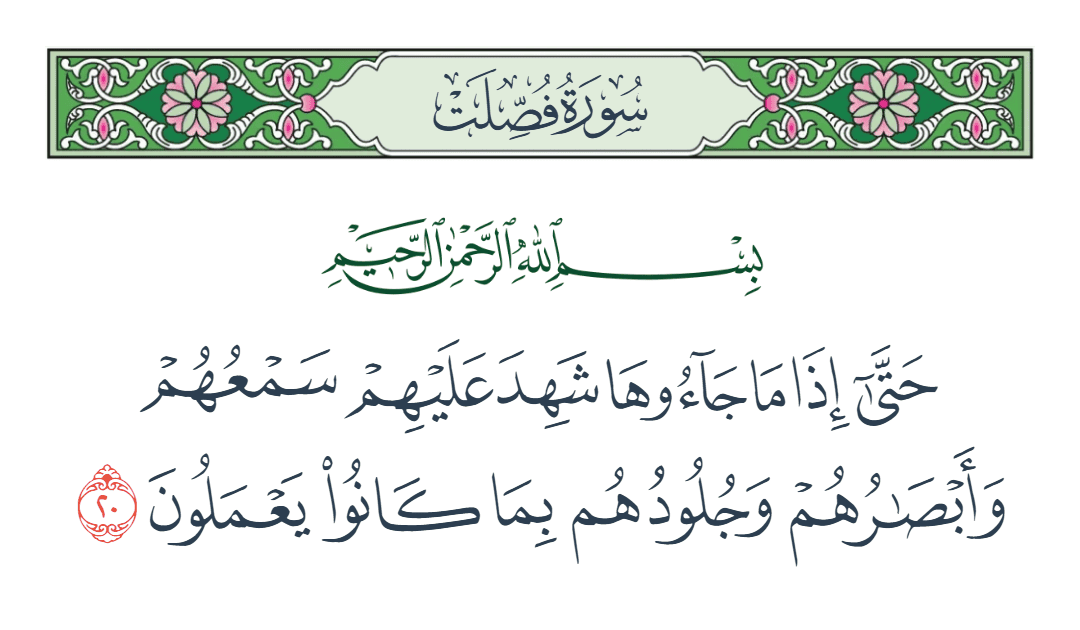 سُورَةُ فُصِّلَتْ
بِسْمِ ٱللَّهِ ٱلرَّحْمَٰنِ ٱلرَّحِيمِ
حَتَّىٰٓ إِذَا مَا جَآءُوهَا شَهِدَ عَلَيْهِمْ سَمْعُهُمْ
وَأَبْصَٰرُهُمْ وَجُلُودُهُم بِمَا كَانُوا۟ يَعْمَلُونَ ٢٠